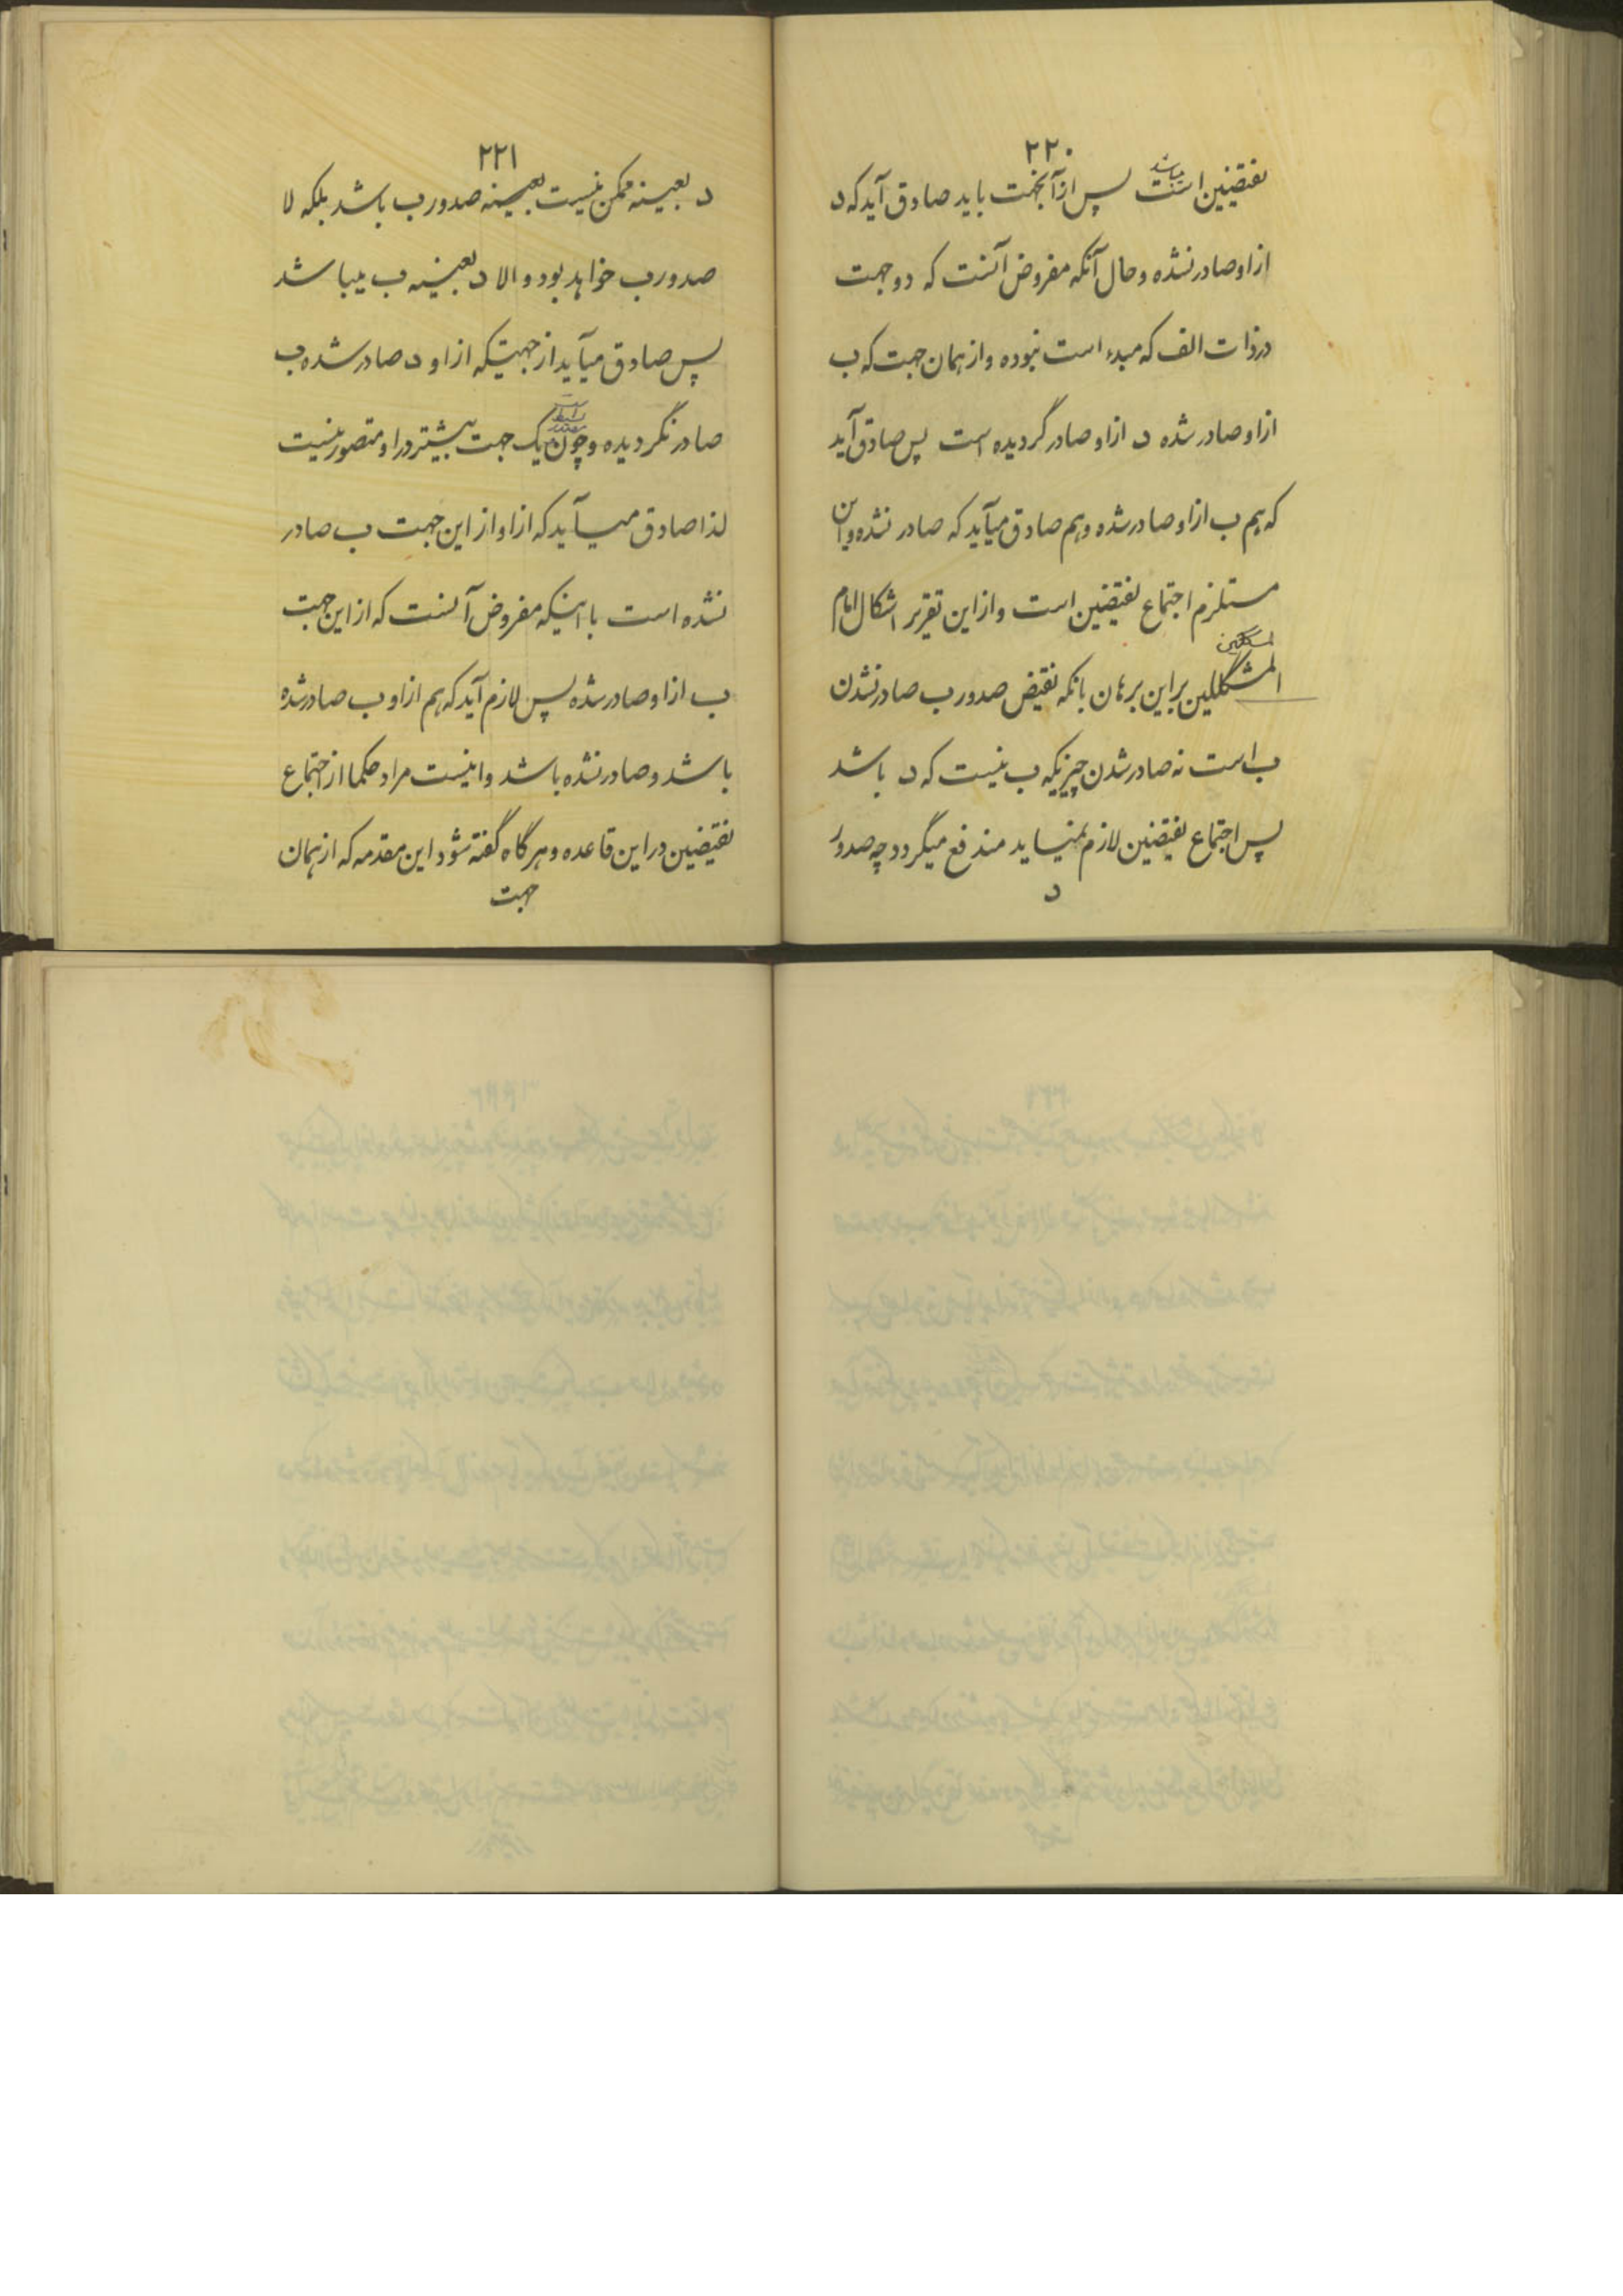 ۲۲۰
میباشد
نقیضین است پس از آنجهت باید صادق آید که د
از او صادر نشده و حال آنکه مفروض آنست که دو جهت
در ذات الف که مبدء است نبوده و از همان جهت که ب
از او صادر شده د از او صادر گردیده است پس صادق آید
که هم ب از او صادر شده و هم صادق میآید که صادر نشده و این
مستلزم اجتماع نقیضین است و از این تقریر اشکال امام
المتکلمین
المشکللین بر این برهان بانکه نقیض صدور ب صادر نشدن
ب است نه صادر شدن چیزیکه ب نیست که د باشد
پس اجتماع نقیضین لازم نمیاید مندفع میگردد چه صدور
د
۲۲۱
د بعینه ممکن نیست بعینه صدور ب باشد بلکه لا
صدور ب خواهد بود و الا د بعینه ب میباشد
پس صادق میآید از جهتیکه از او د صادر شده ب
صادر نگردیده و چون یک جهت بیشتر در او متصور نیست
لذا صادق میآید که از او از این جهت ب صادر
نشده است با اینکه مفروض آنست که از این جهت
ب از او صادر شده پس لازم آید که هم از او ب صادر شده
باشد و صادر نشده باشد و اینست مراد حکما از اجتماع
نقیضین در این قاعده و هر گاه گفته شود این مقدمه که از همان
جهت